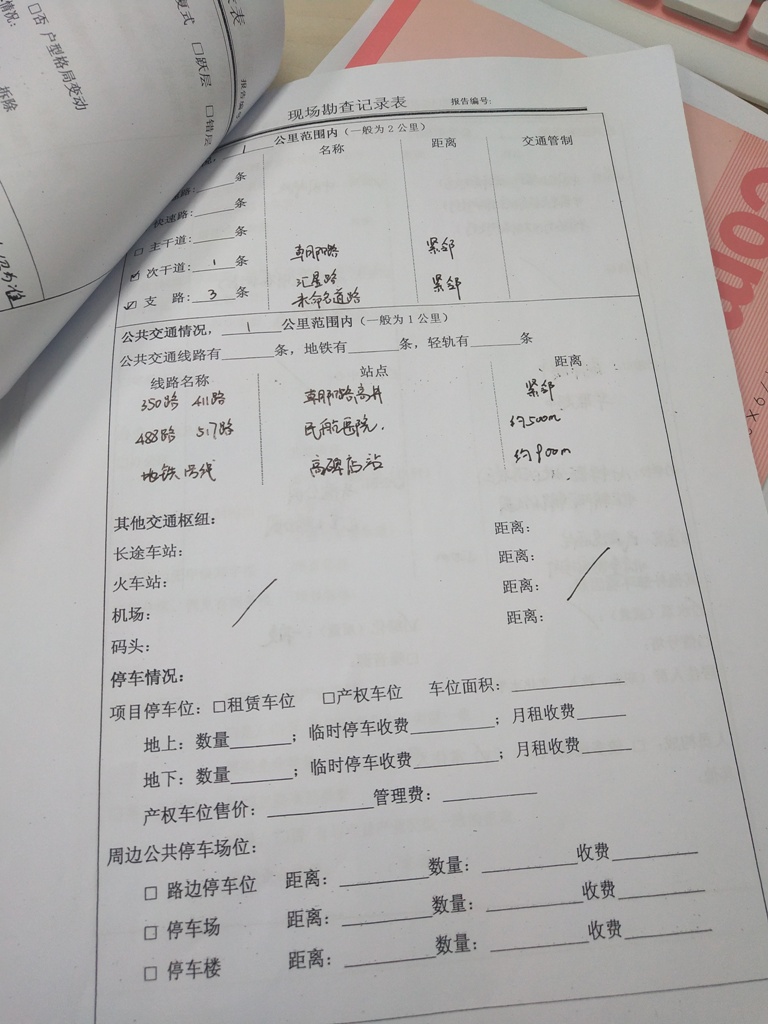 情况：
□否 户型格局变动
拆除
复式 □跃层 □错层
表
报告编号
现场勘查记录表 报告编号：
1 公里范围内（一般为2公里）
名称 距离 交通管制
路：______条
快速路：______条
□ 主干道：______条
☑ 次干道：1 条 朝阳路 紧邻
☑ 支 路：3 条 汇星路 紧邻
未命名道路
公共交通情况，1 公里范围内（一般为1公里）
公共交通线路有______条，地铁有______条，轻轨有______条
线路名称 站点 距离
350路 411路 朝阳路高井 紧邻
488路 517路 民航医院. 约500m
地铁 号线 高碑店站 约900m
其他交通枢纽： 距离：
长途车站： 距离：
火车站： 距离：
机场： 距离：
码头：
停车情况：
项目停车位：□租赁车位 □产权车位 车位面积：______
地上：数量______；临时停车收费______；月租收费______
地下：数量______；临时停车收费______；月租收费______
产权车位售价：______管理费：______
周边公共停车场位：
□ 路边停车位 距离：______数量：______收费______
□ 停车场 距离：______数量：______收费______
□ 停车楼 距离：______数量：______收费______
com